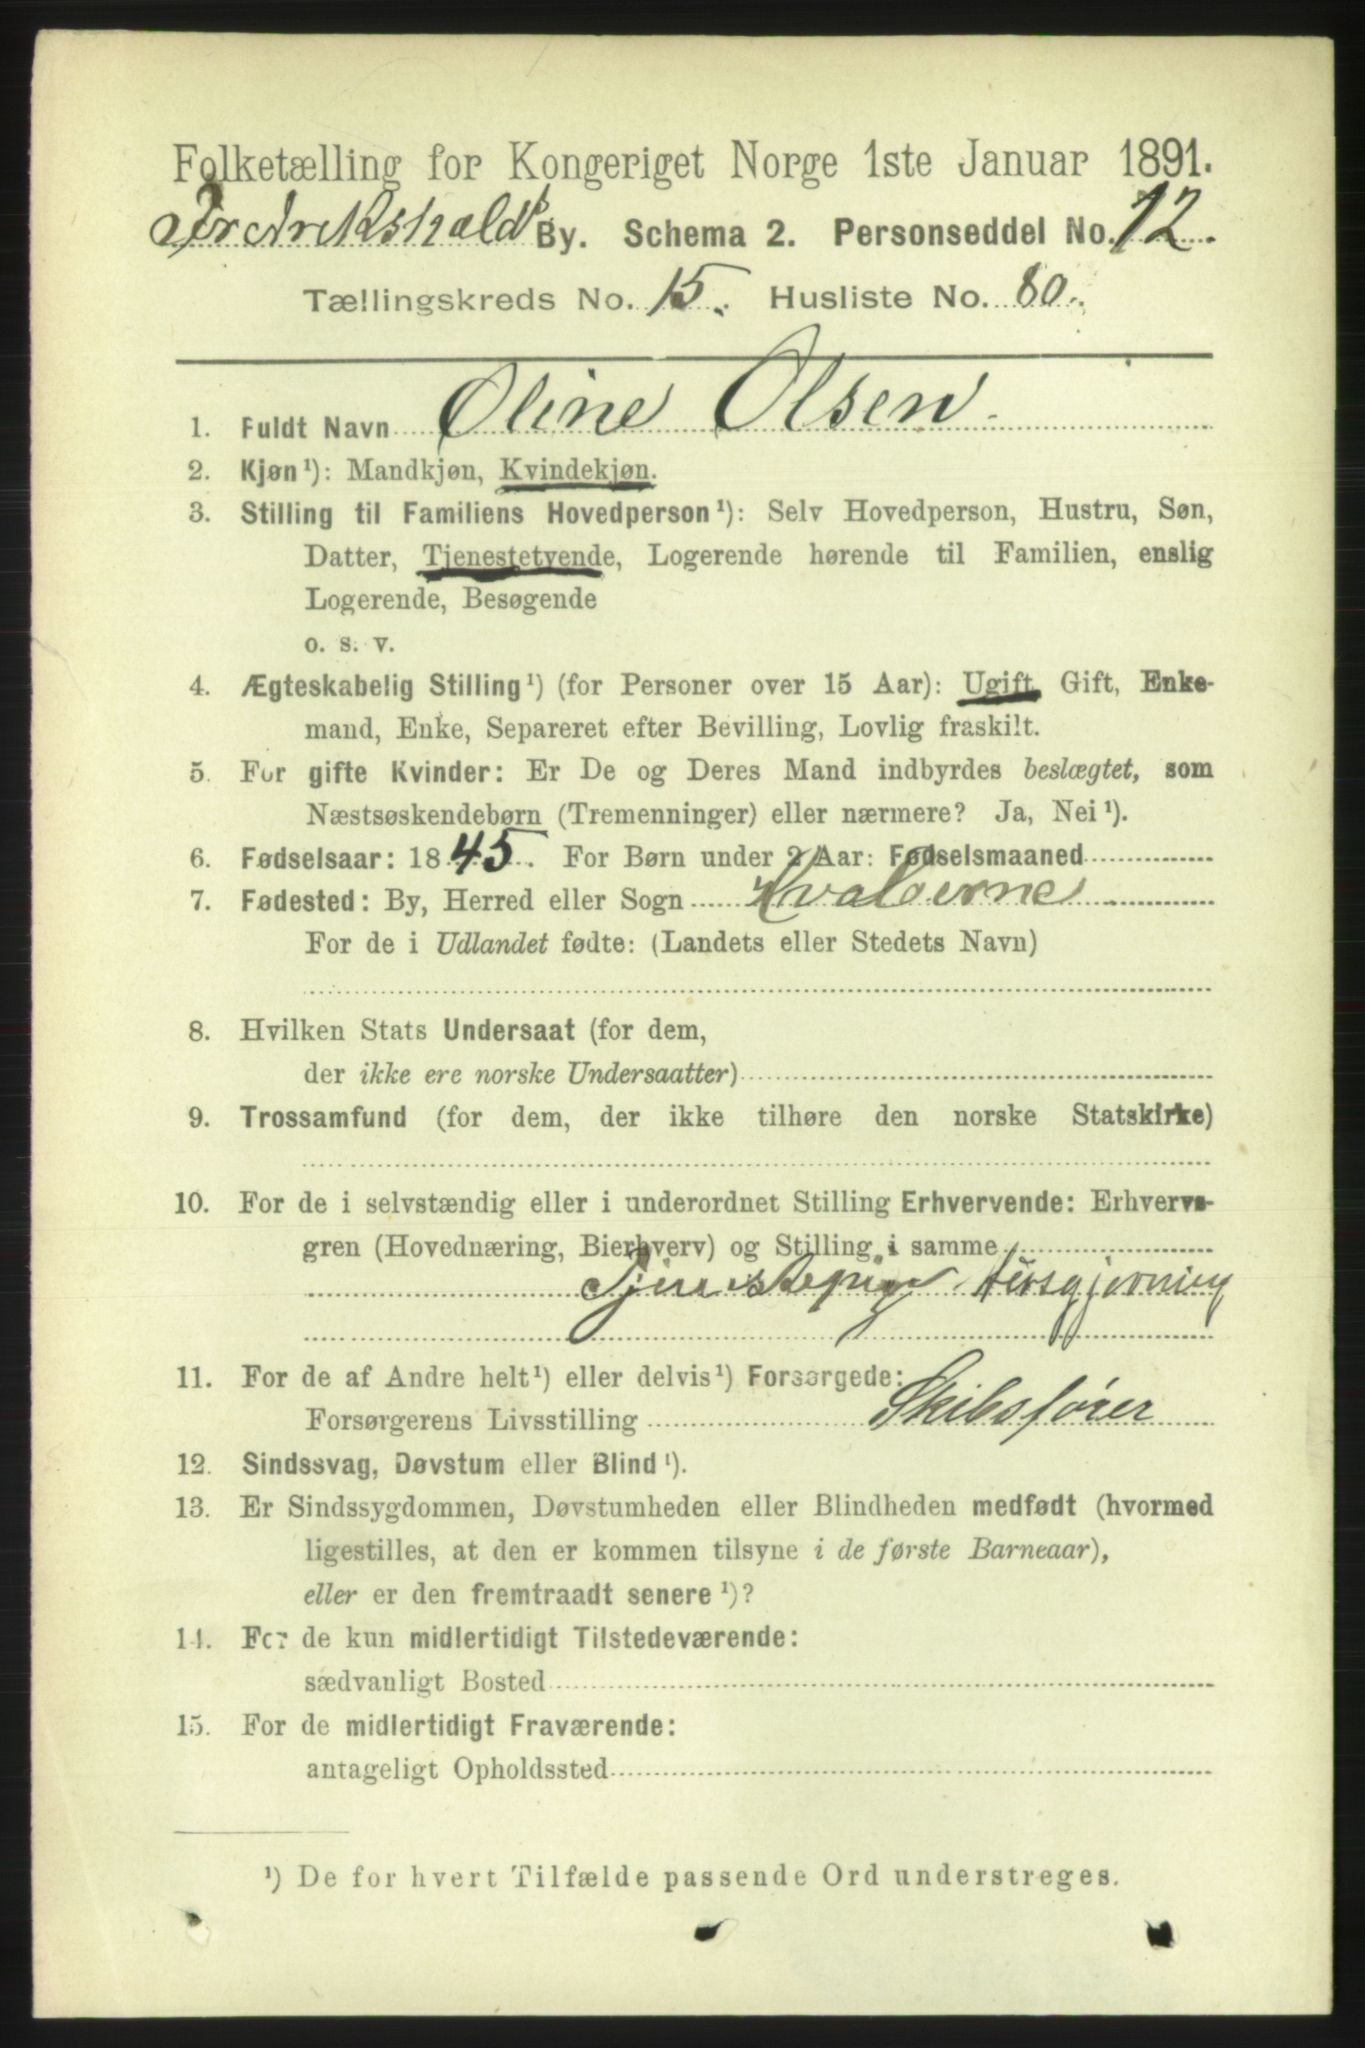 Folketælling for Kongeriget Norge 1ste Januar 1891.
Fredrikshalds By. Schema 2. Personseddel No. 12.
Tællingskreds No. 15. Husliste No. 80.
1. Fuldt Navn Oline Olsen.
2. Kjøn¹): Mandkjøn, Kvindekjøn.
3. Stilling til Familiens Hovedperson¹): Selv Hovedperson, Hustru, Søn,
Datter, Tjenestetyende, Logerende hørende til Familien, enslig
Logerende, Besøgende
o. s. v.
4. Ægteskabelig Stilling¹) (for Personer over 15 Aar): Ugift, Gift, Enke-
mand, Enke, Separeret efter Bevilling, Lovlig fraskilt.
5. For gifte Kvinder: Er De og Deres Mand indbyrdes beslægtet, som
Næstsøskendebørn (Tremenninger) eller nærmere? Ja, Nei¹).
6. Fødselsaar: 1845. For Børn under 2 Aar: Fødselsmaaned
7. Fødested: By, Herred eller Sogn Hvaløerne
For de i Udlandet fødte: (Landets eller Stedets Navn)
8. Hvilken Stats Undersaat (for dem,
der ikke ere norske Undersaatter)
9. Trossamfund (for dem, der ikke tilhøre den norske Statskirke)
10. For de i selvstændig eller i underordnet Stilling Erhvervende: Erhvervs-
gren (Hovednæring, Bierhverv) og Stilling i samme
Tjenestepige Husgjerning
11. For de af Andre helt¹) eller delvis¹) Forsørgede:
Forsørgerens Livsstilling Skibsfører
12. Sindssvag, Døvstum eller Blind¹).
13. Er Sindssygdommen, Døvstumheden eller Blindheden medfødt (hvormed
ligestilles, at den er kommen tilsyne i de første Barneaar),
eller er den fremtraadt senere¹)?
14. For de kun midlertidigt Tilstedeværende:
sædvanligt Bosted
15. For de midlertidigt Fraværende:
antageligt Opholdssted
¹) De for hvert Tilfælde passende Ord understreges.